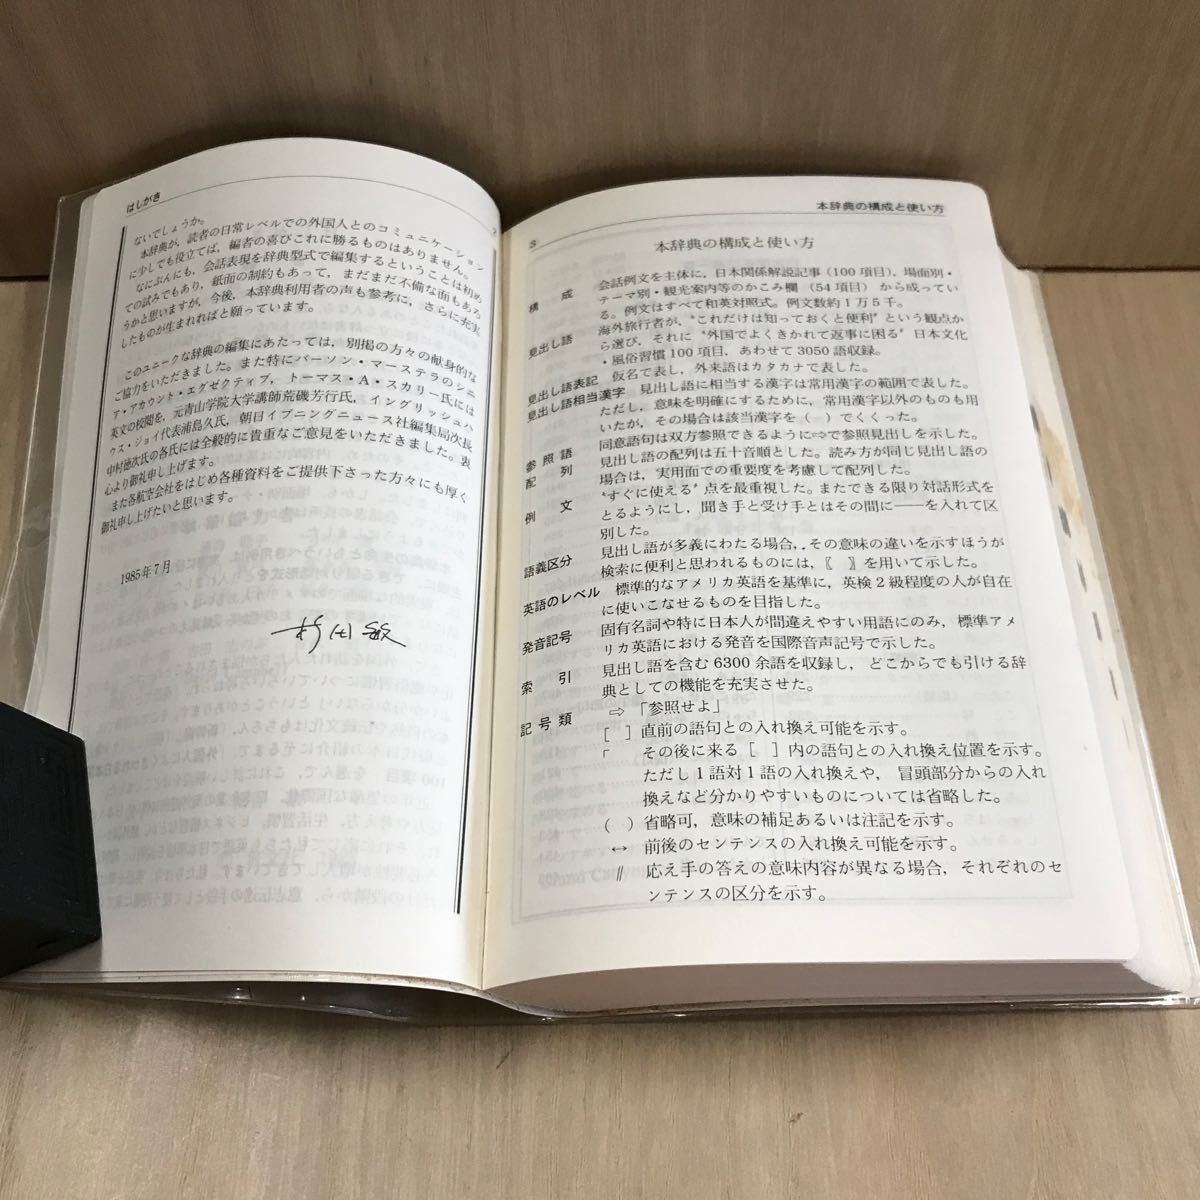 はしがき
2
ないでしょうか。
本辞典が、読者の日常レベルでの外国人とのコミュニケーション
に少しでも役立てば，編者の喜びこれに勝るものはありません。
なにぶんにも，会話表現を辞典型式で編集するということは初め
ての試みでもあり，紙面の制約もあって，まだまだ不備な面もあろ
うかと思いますが，今後，本辞典利用者の声も参考に，さらに充実
したものが生まれればと願っています。
このユニークな辞典の編集にあたっては，別掲の方々の献身的な
ご協力をいただきました。また特にバーソン・マーステラのシニ
ア・アカウント・エグゼクティブ，トーマス・A・スカリー氏には
英文の校閲を，元青山学院大学講師荒磯芳行氏，イングリッシュハ
ウス・ジョイ代表浦島久氏，朝日イブニングニュース社編集局次長
中村徳次氏の各氏には全般的に貴重なご意見をいただきました。衷
心より御礼申し上げます。
また各航空会社をはじめ各種資料をご提供下さった方々にも厚く
御礼申し上げたいと思います。
1985年7月
杉田敏
3
本辞典の構成と使い方
本辞典の構成と使い方
構　成　会話例文を主体に，日本関係解説記事（100項目），場面別・
テーマ別・観光案内等のかこみ欄（54項目）から成ってい
る。例文はすべて和英対照式。例文数約1万5千。
見出し語　海外旅行者が，“これだけは知っておくと便利”という観点か
ら選び，それに“外国でよくきかれて返事に困る”日本文化
・風俗習慣100項目，あわせて3050語収録。
見出し語表記　仮名で表し，外来語はカタカナで表した。
見出し語相当漢字　見出し語に相当する漢字は常用漢字の範囲で表した。
ただし，意味を明確にするために，常用漢字以外のものも用
いたが，その場合は該当漢字を（　）でくくった。
参照語　同意語句は双方参照できるように⇨で参照見出しを示した。
配　列　見出し語の配列は五十音順とした。読み方が同じ見出し語の
場合は，実用面での重要度を考慮して配列した。
例　文　“すぐに使える”点を最重視した。またできる限り対話形式を
とるようにし，聞き手と受け手とはその間に——を入れて区
別した。
語義区分　見出し語が多義にわたる場合，その意味の違いを示すほうが
検索に便利と思われるものには，〘　〙を用いて示した。
英語のレベル　標準的なアメリカ英語を基準に，英検2級程度の人が自在
に使いこなせるものを目指した。
発音記号　固有名詞や特に日本人が間違えやすい用語にのみ，標準アメ
リカ英語における発音を国際音声記号で示した。
索　引　見出し語を含む6300余語を収録し，どこからでも引ける辞
典としての機能を充実させた。
記号類　⇨　「参照せよ」
［　］直前の語句との入れ換え可能を示す。
「　その後に来る［　］内の語句との入れ換え位置を示す。
ただし1語対1語の入れ換えや，冒頭部分からの入れ
換えなど分かりやすいものについては省略した。
（　）省略可，意味の補足あるいは注記を示す。
↔　前後のセンテンスの入れ換え可能を示す。
∥　応え手の答えの意味内容が異なる場合，それぞれのセ
ンテンスの区分を示す。